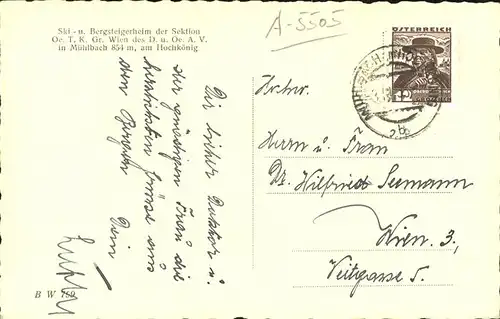 Ski- u. Bergsteigerheim der Sektion
Oe. T. K. Gr. Wien des D. u. Oe. A. V.
in Mühlbach 854 m, am Hochkönig
A-5505
ÖSTERREICH
12
Dir lieber Doktor u.
der gnädigen Frau die
herzlichsten Grüsse aus
den Bergen
Dein
Hochw.
Herrn u. Frau
Dr. Wilfried Seemann
Wien 3,
Veitgasse 5.
B W